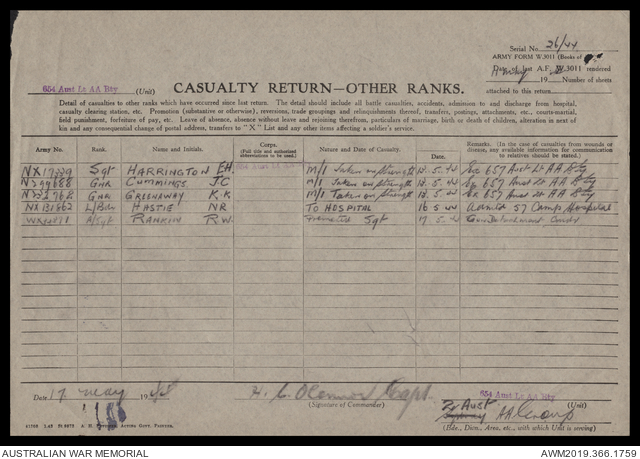 Serial No. 26/44
ARMY FORM W.3011 (Books of
Date of last A.F. W.3011 rendered
19 Number of sheets
attached to this return
654 Aust Lt AA Bty (Unit)
CASUALTY RETURN—OTHER RANKS.
Detail of casualties to other ranks which have occurred since last return. The detail should include all battle casualties, accidents, admission to and discharge from hospital,
casualty clearing station, etc. Promotion (substantive or otherwise), reversions, trade groupings and relinquishments thereof, transfers, postings, attachments, etc., courts-martial,
field punishment, forfeiture of pay, etc. Leave of absence, absence without leave and rejoining therefrom, particulars of marriage, birth or death of children, alteration in next of
kin and any consequential change of postal address, transfers to "X" List and any other items affecting a soldier's service.
Army No. Rank. Name and Initials. Corps. (Full title and authorised abbreviations to be used.) Nature and Date of Casualty. Date. Remarks. (In the case of casualties from wounds or disease, any available information for communication to relatives should be stated.)
Sgt HARRINGTON EH M/I Taken on Strength 12.5.44 Ex 657 Aust Lt AA Bty
Gnr CUMMINGS J.C M/I Taken on Strength 12.5.44 Ex 657 Aust Lt AA Bty
Gnr GREENAWAY K.K M/I Taken on Strength 12.5.44 Ex 657 Aust Lt AA Bty
NX131862 L/Bdr HASTIE NR TO HOSPITAL 16 5 44 Admitd 57 Camp Hospital
A/Sgt RANKIN R W. Promoted Sgt 17.5.44 Gun Detachment Comdr
Date 17 May 1944
H. C. O'Connor Capt.
(Signature of Commander)
654 Aust Lt AA Bty (Unit)
2 Aust AA Group
(Bde., Divn., Area, etc., with which Unit is serving)
AUSTRALIAN WAR MEMORIAL
AWM2019.366.1759